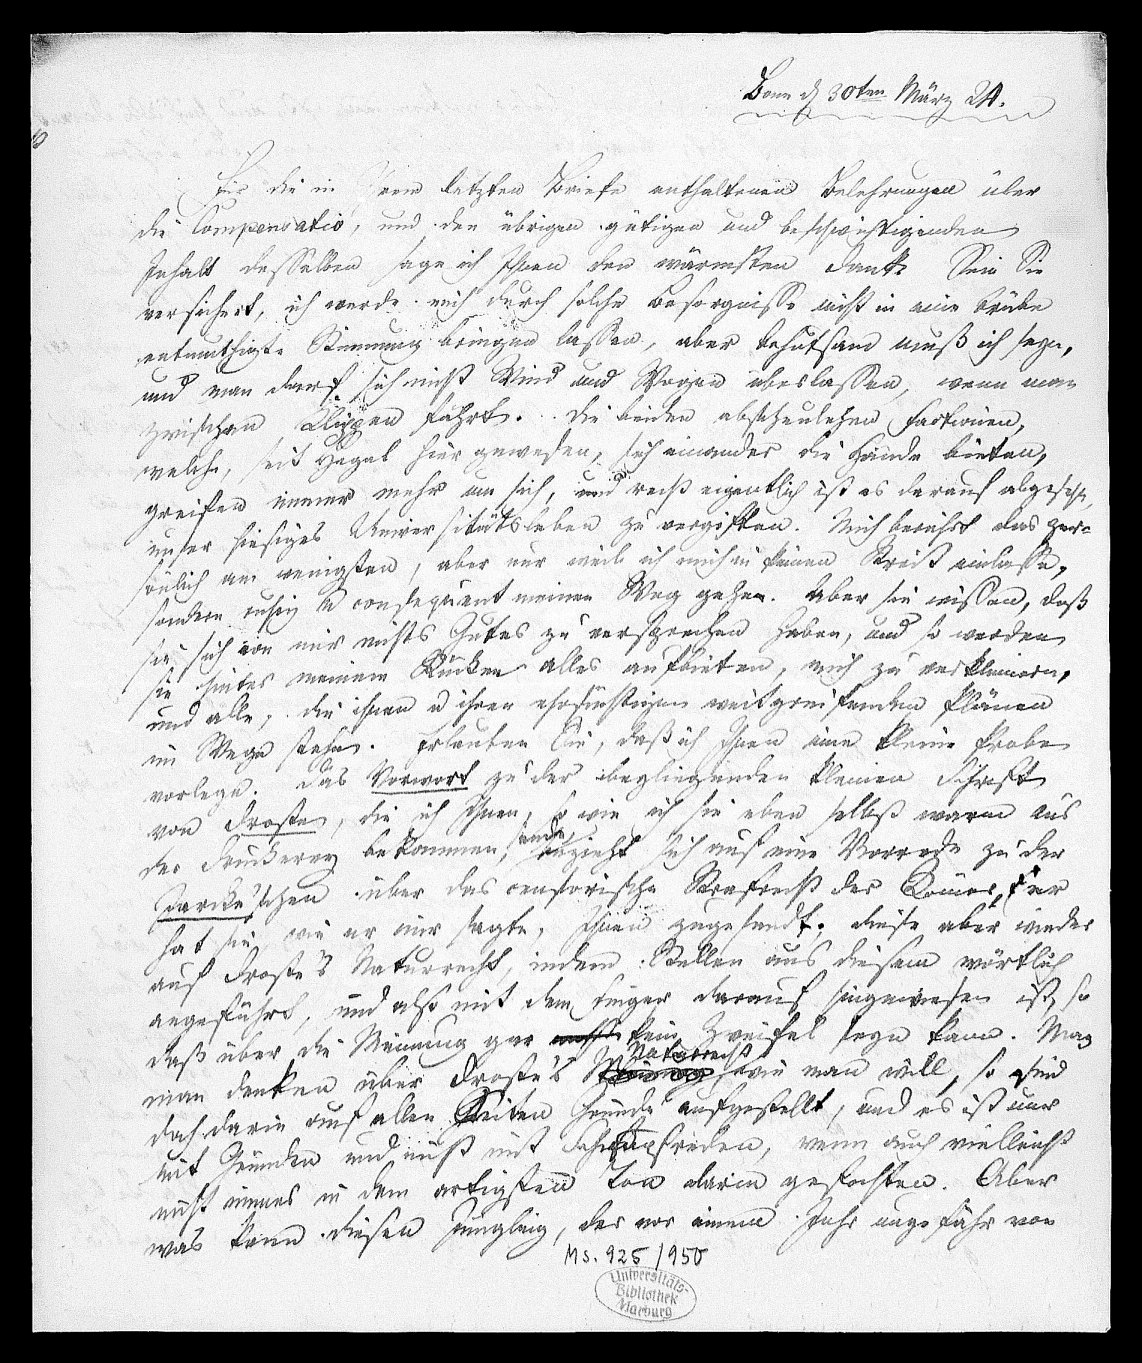 Bonn d 30ten März 24.
Für die in Ihrem letzten Briefe enthaltenen Belehrungen über
die Compensatio, und den übrigen gütigen und beschwichtigenden
Inhalt desselben sage ich Ihnen den wärmsten Dank. Sein Sie
versichert, ich werde mich durch solche Besorgnisse nicht in eine trübe
entmuthigte Stimmung bringen lassen, aber behutsam muß ich seyn,
und man darf sich nicht Wind und Wogen überlassen, wenn man
zwischen Klippen fährt. Die beiden abscheulichen Factionen,
welche, seit Hegel hier gewesen, sich einander die Hände bieten,
greifen immer mehr um sich, und recht eigentlich ist es darauf abgesehn,
unser hiesiges Universitätsleben zu vergiften. Mich berührt das per-
sönlich am wenigsten, aber nur weil ich mich in keinen Streit einlasse,
sondern ruhig u consequent meinen Weg gehe. Aber sie wissen, daß
sie sich von mir nichts Gutes zu versprechen haben, und so werden
sie hinter meinem Rücken alles aufbieten, mich zu verkleinern,
und alle, die ihnen u ihren ehrsüchtigen weitgreifenden Plänen
im Wege stehn. Erlauben Sie, daß ich Ihnen eine kleine Probe
vorlege. Das Vorwort zu der beyliegenden kleinen Schrift
von Droste, die ich Ihnen, so wie ich sie eben selbst warm aus
der Druckerey bekommen, sende, bezieht sich auf eine Vorrede zu der
Jarcke'schen über das censorische Strafrecht der Römer, er
hat sie, wie er mir sagte, Ihnen zugesandt; diese aber wieder
auf Droste's Naturrecht, indem Stellen aus diesem wörtlich
angeführt, und also mit dem Finger darauf hingewiesen ist, so
daß über die Meinung gar kein Zweifel seyn kann. Mag
man denken über Droste's Naturrecht, wie man will, so sind
doch darin auf allen Seiten Gründe aufgestellt, und es ist nur
mit Gründen und nicht mit gefochten, wenn auch vielleicht
nicht immer in dem artigsten Ton darin gefochten. Aber
was kann diesen Jüngling, der vor einem Jahr ungefähr von
Ms. 925/950
Universitäts-
Bibliothek
Marburg